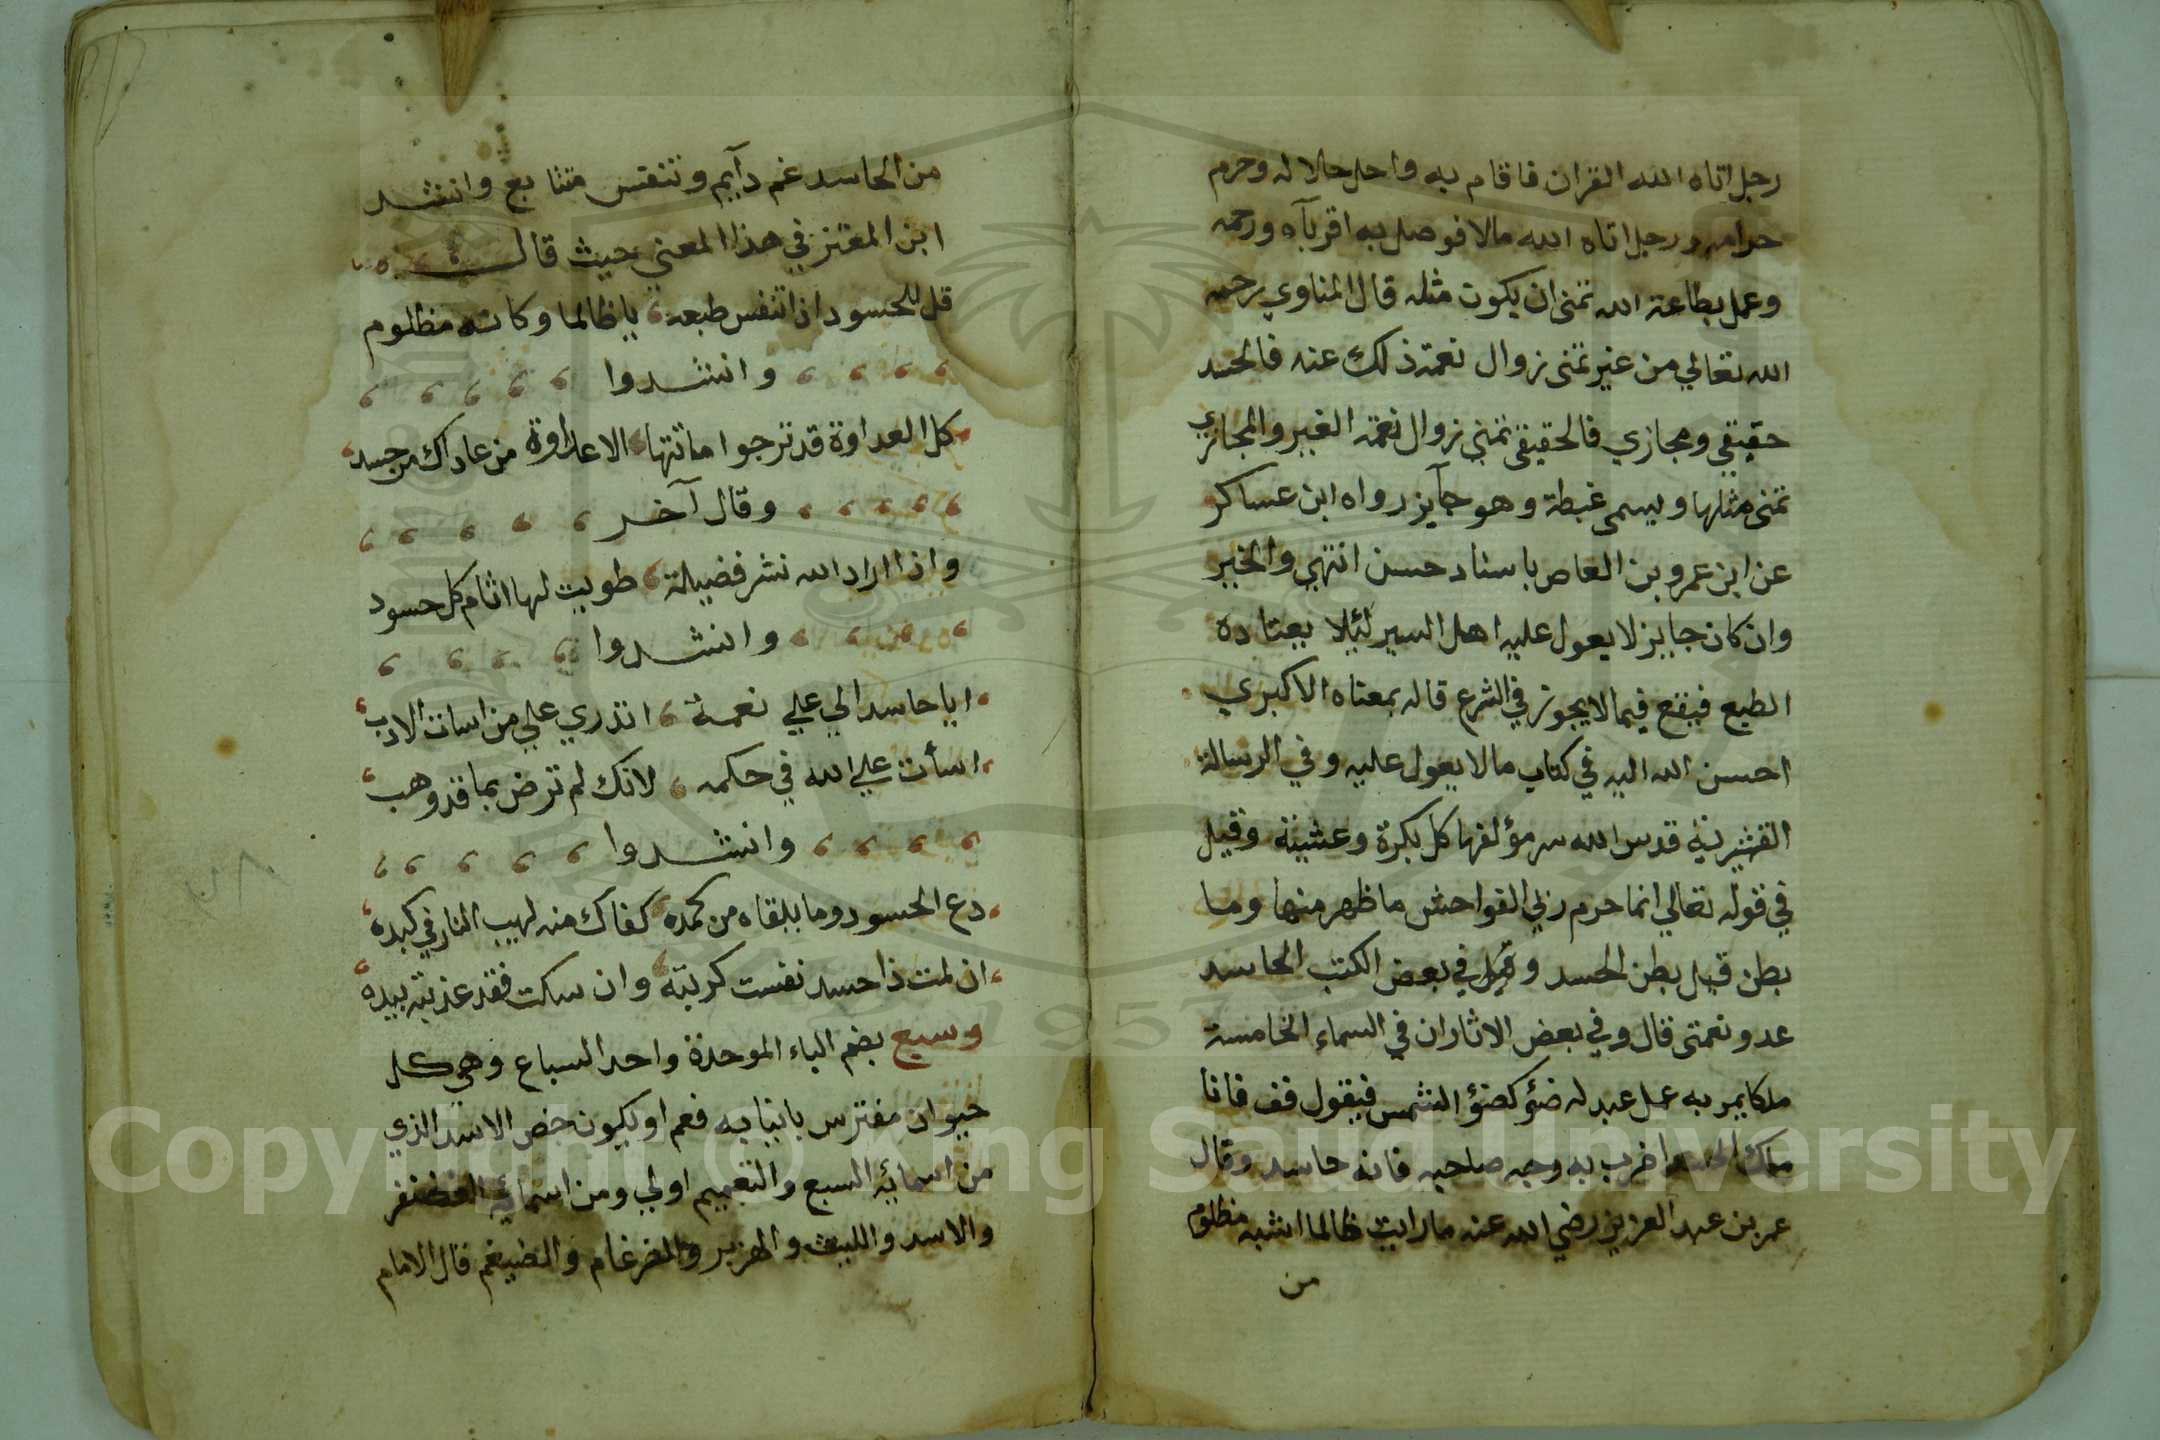 رجل اتاه الله القران فاقام به واحل حلاله وحرم
حرامه ورجل اتاه الله مالا فوصل به اقربآه ورحمه
وعمل بطاعة الله تمنى ان يكون مثله قال المناوي رحمه
الله تعالي من غير تمنى زوال نعمة ذلك عنه فالحسد
حقيقي ومجازي فالحقيقي تمني زوال نعمة الغير والمجازي
تمنى مثلها ويسمى غبطة وهو جآيز رواه ابن عساكر
عن ابن عمرو بن العاص باسناد حسن انتهي والخبر
وان كان جايز لا يعول عليه اهل السير لئلا يعتاده
الطبع فيقع فيما لا يجوز في الشرع قاله بمعناه الاكبري
احسن الله اليه في كتاب مالا يعول عليه وفي الرسالة
القشيرية قدس الله سر مؤلفها كل بكرة وعشية وقيل
في قوله تعالي انما حرم ربي الفواحش ما ظهر منها وما
بطن قيل بطن الحسد وقيل في بعض الكتب الحاسد
عدو نعمتى قال وفي بعض الاثار ان في السماء الخامسة
ملكا يمر به عمل عبد له ضئو كضئو الشمس فيقول قف فانا
ملك الحسد اضرب به وجه صاحبه فانه حاسد وقال
عمر بن عبد العزيز رضي الله عنه ما رايت ظالما اشبه مظلوم
من
من الحاسد غم دآيم وتنفس متتابع وانشد
ابن المعتز في هذا المعني حيث قال
قل للحسود اذا تنفس طبعه يا ظالما وكانه مظلوم
وانشدوا
كل العداوة قد ترجوا ماتتها الا عداوة من عاداك من حسد
وقال آخر
واذا اراد الله نشر فضيلة طويت لها اتام كل حسود
وانشدوا
ايا حاسدا لي علي نعمة اتدري علي من اسات الادب
اسأت علي الله في حكمه لانك لم ترض بما قد وهب
وانشدوا
دع الحسود وما يلقاه من كمده كفاك منه لهيب النار في كبده
ان لمت ذا حسد نفست كربته وان سكت فقد عذبته بيده
وسبع بضم الباء الموحدة واحد السباع وهي كل
حيوان مفترس بانيابه فعم او يكون خص الاسد الذي
من اسمائه السبع والتعميم اولي ومن اسمائه الغضنفر
والاسد والليث والهزبر والضرغام والضيغم قال الامام